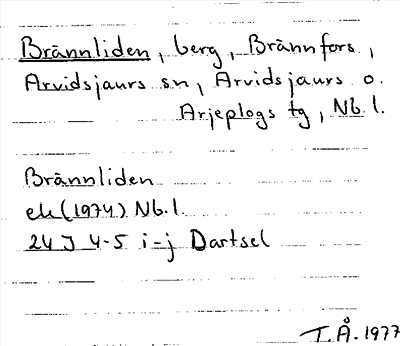 Brännliden, berg, Brännfors,
Arvidsjaurs sn, Arvidsjaurs o.
Arjeplogs tg, Nb. l.
Brännliden
ek (1974) Nb. l.
24 J 4-5 i-j Dartsel
T.Å. 1977